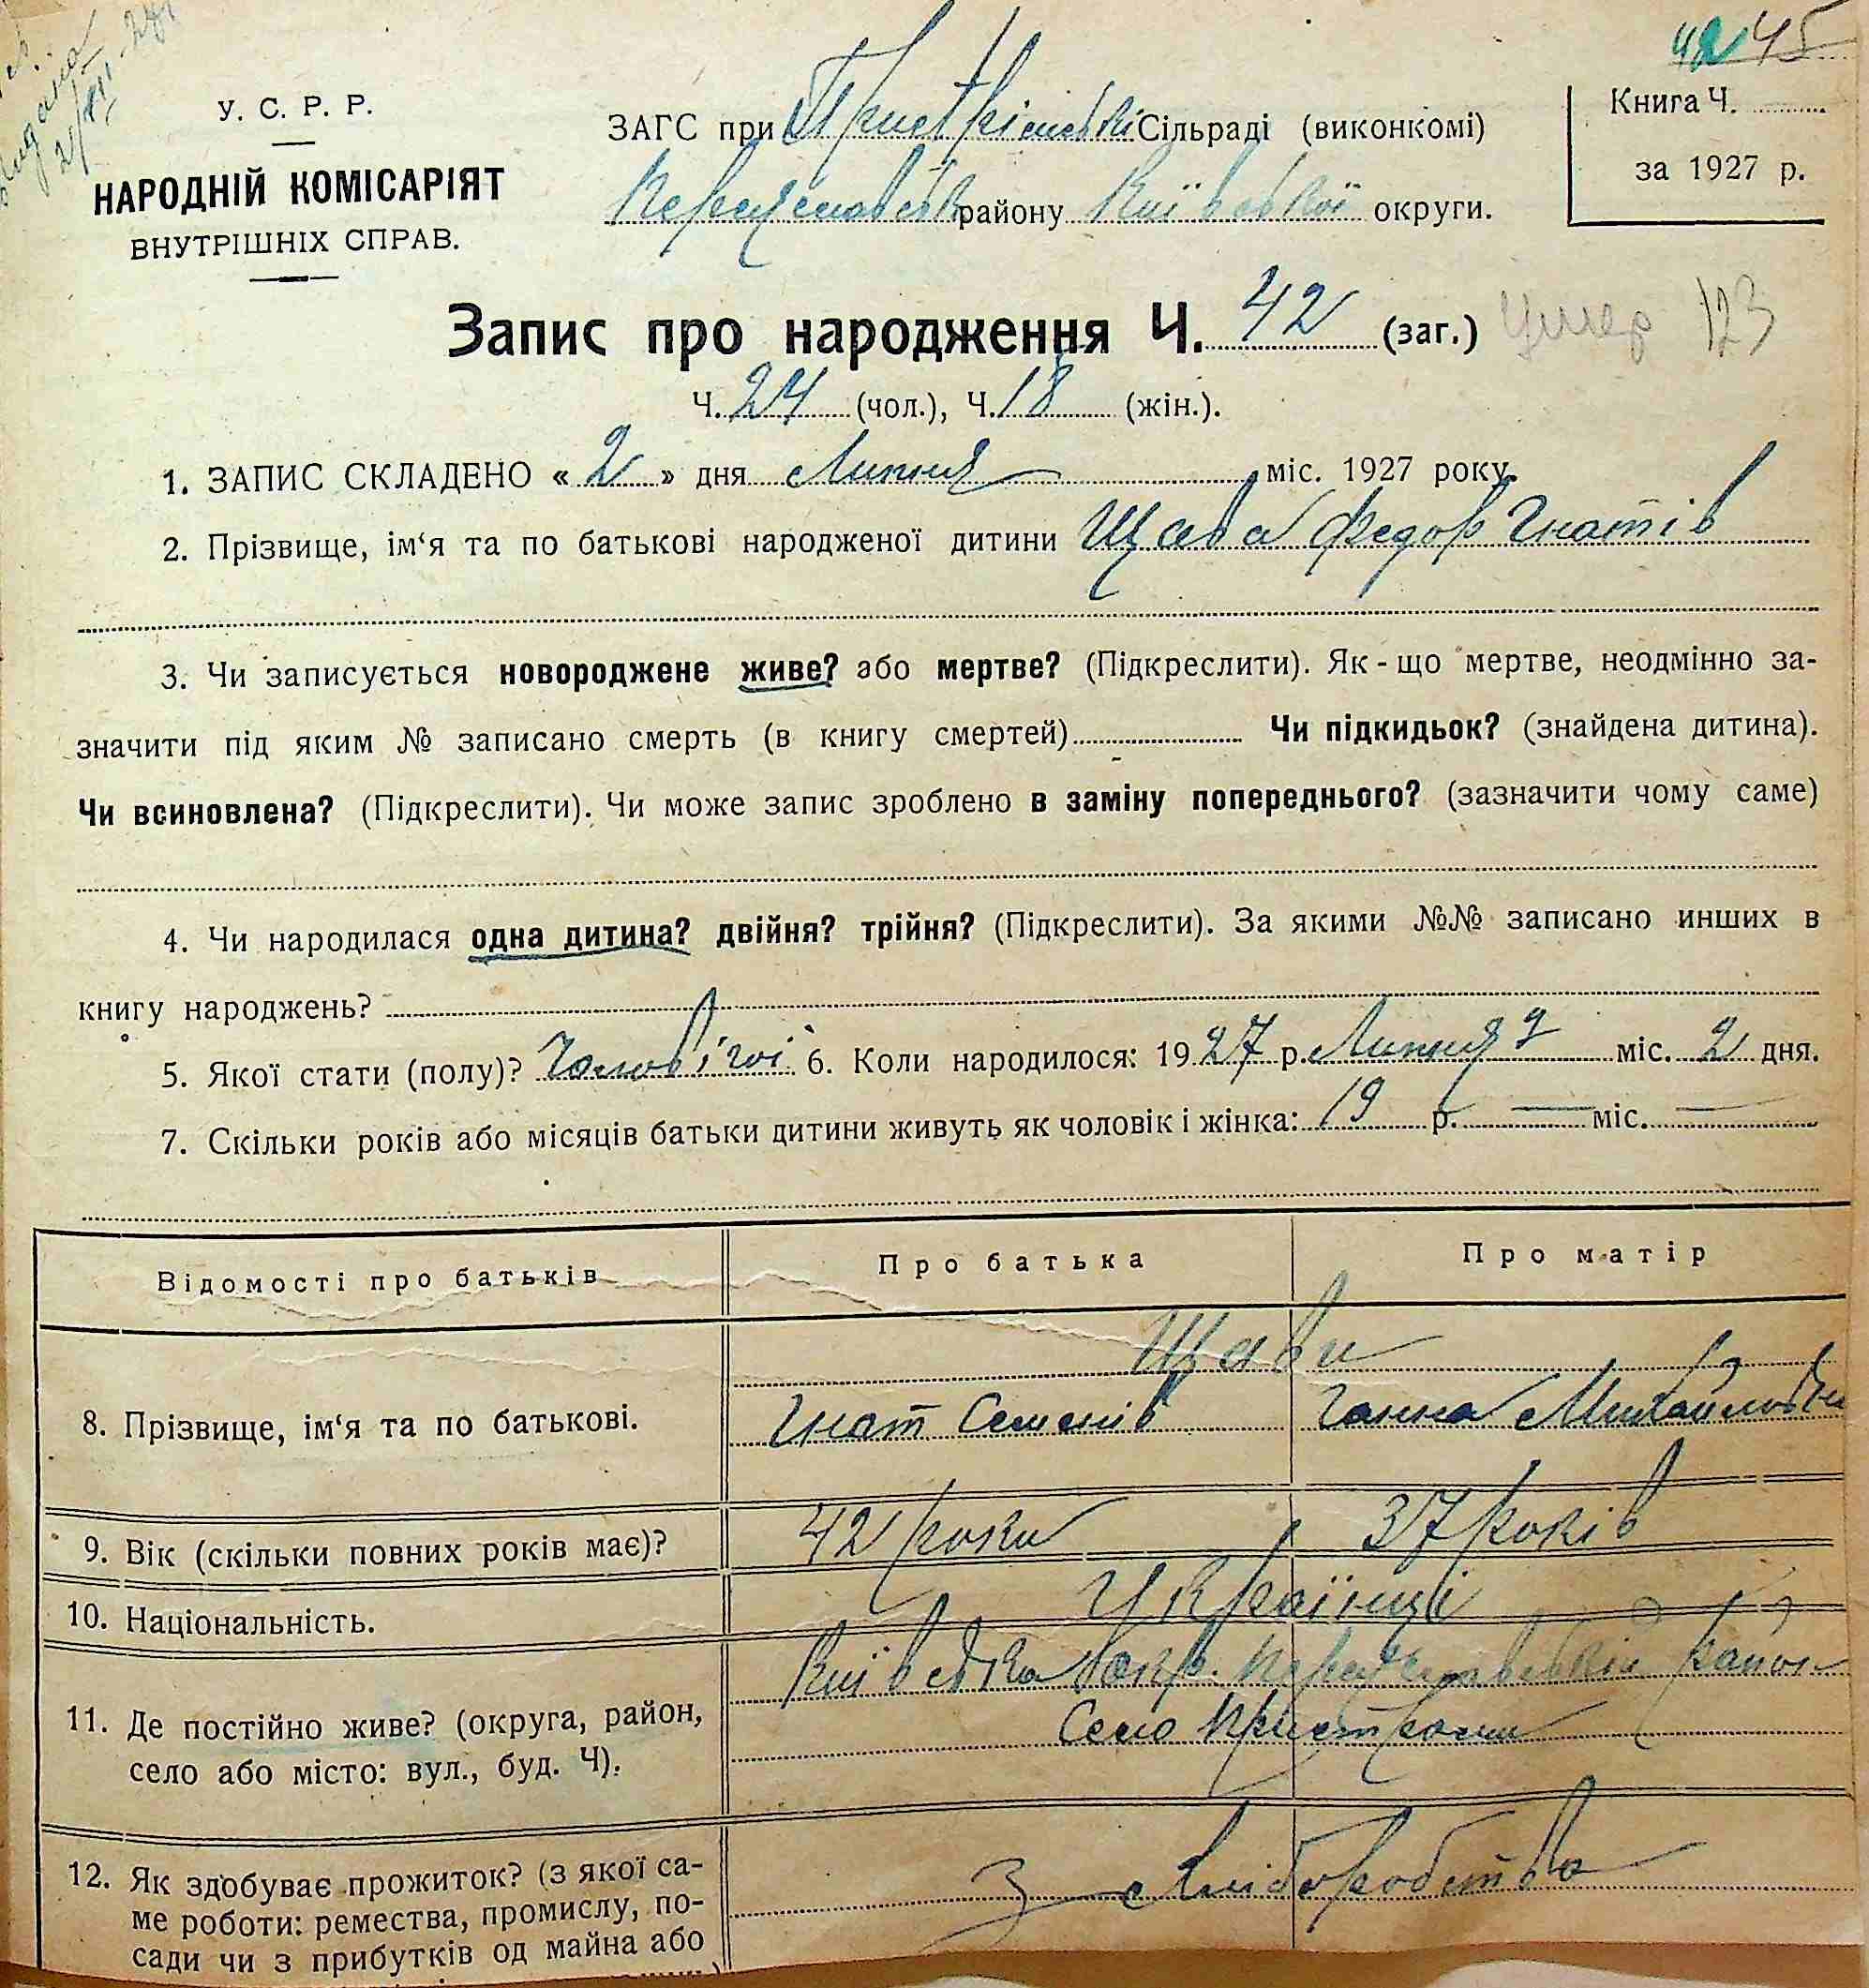 Видано 2/VIII 28
42 45
У. С. Р. Р.
НАРОДНІЙ КОМІСАРІЯТ
ВНУТРІШНІХ СПРАВ.
ЗАГС при Пристрімські Сільраді (виконкомі)
Переяславськ району Київської округи.
Книга Ч. ........
за 1927 р.
Запис про народження Ч. 42 (заг.) Умер 123
Ч. 24 (чол.), Ч. 18 (жін.).
1. ЗАПИС СКЛАДЕНО « 2 » дня Липня міс. 1927 року.
2. Прізвище, ім‘я та по батькові народженої дитини Щава Федор Гнатів
3. Чи записується новороджене живе? або мертве? (Підкреслити). Як-що мертве, неодмінно за-
значити під яким № записано смерть (в книгу смертей) ........ Чи підкидьок? (знайдена дитина).
Чи всиновлена? (Підкреслити). Чи може запис зроблено в заміну попереднього? (зазначити чому саме)
4. Чи народилася одна дитина? двійня? трійня? (Підкреслити). За якими №№ записано инших в
книгу народжень?
5. Якої стати (полу)? Чоловічої 6. Коли народилося: 1927 р. Липня 2 міс. 2 дня.
7. Скільки років або місяців батьки дитини живуть як чоловік і жінка: 19 р. — міс. —
Відомості про батьків Про батька Про матір
Щави
8. Прізвище, ім‘я та по батькові. Гнат Семенів Ганна Михайловна
9. Вік (скільки повних років має)? 42 роки 37 років
10. Національність. Українці
Київська окр. Переяславській район
11. Де постійно живе? (округа, район, Село Пристроми
село або місто: вул., буд. Ч).
12. Як здобуває прожиток? (з якої са- З хліборобства
ме роботи: ремества, промислу, по-
сади чи з прибутків од майна або